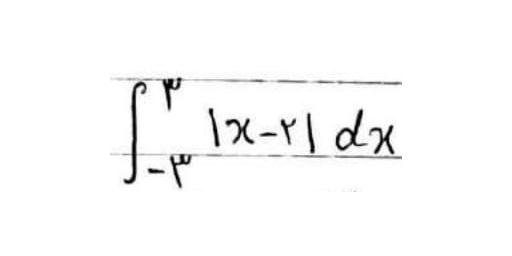 ∫_{-۳}^{۳} |x-۲| dx